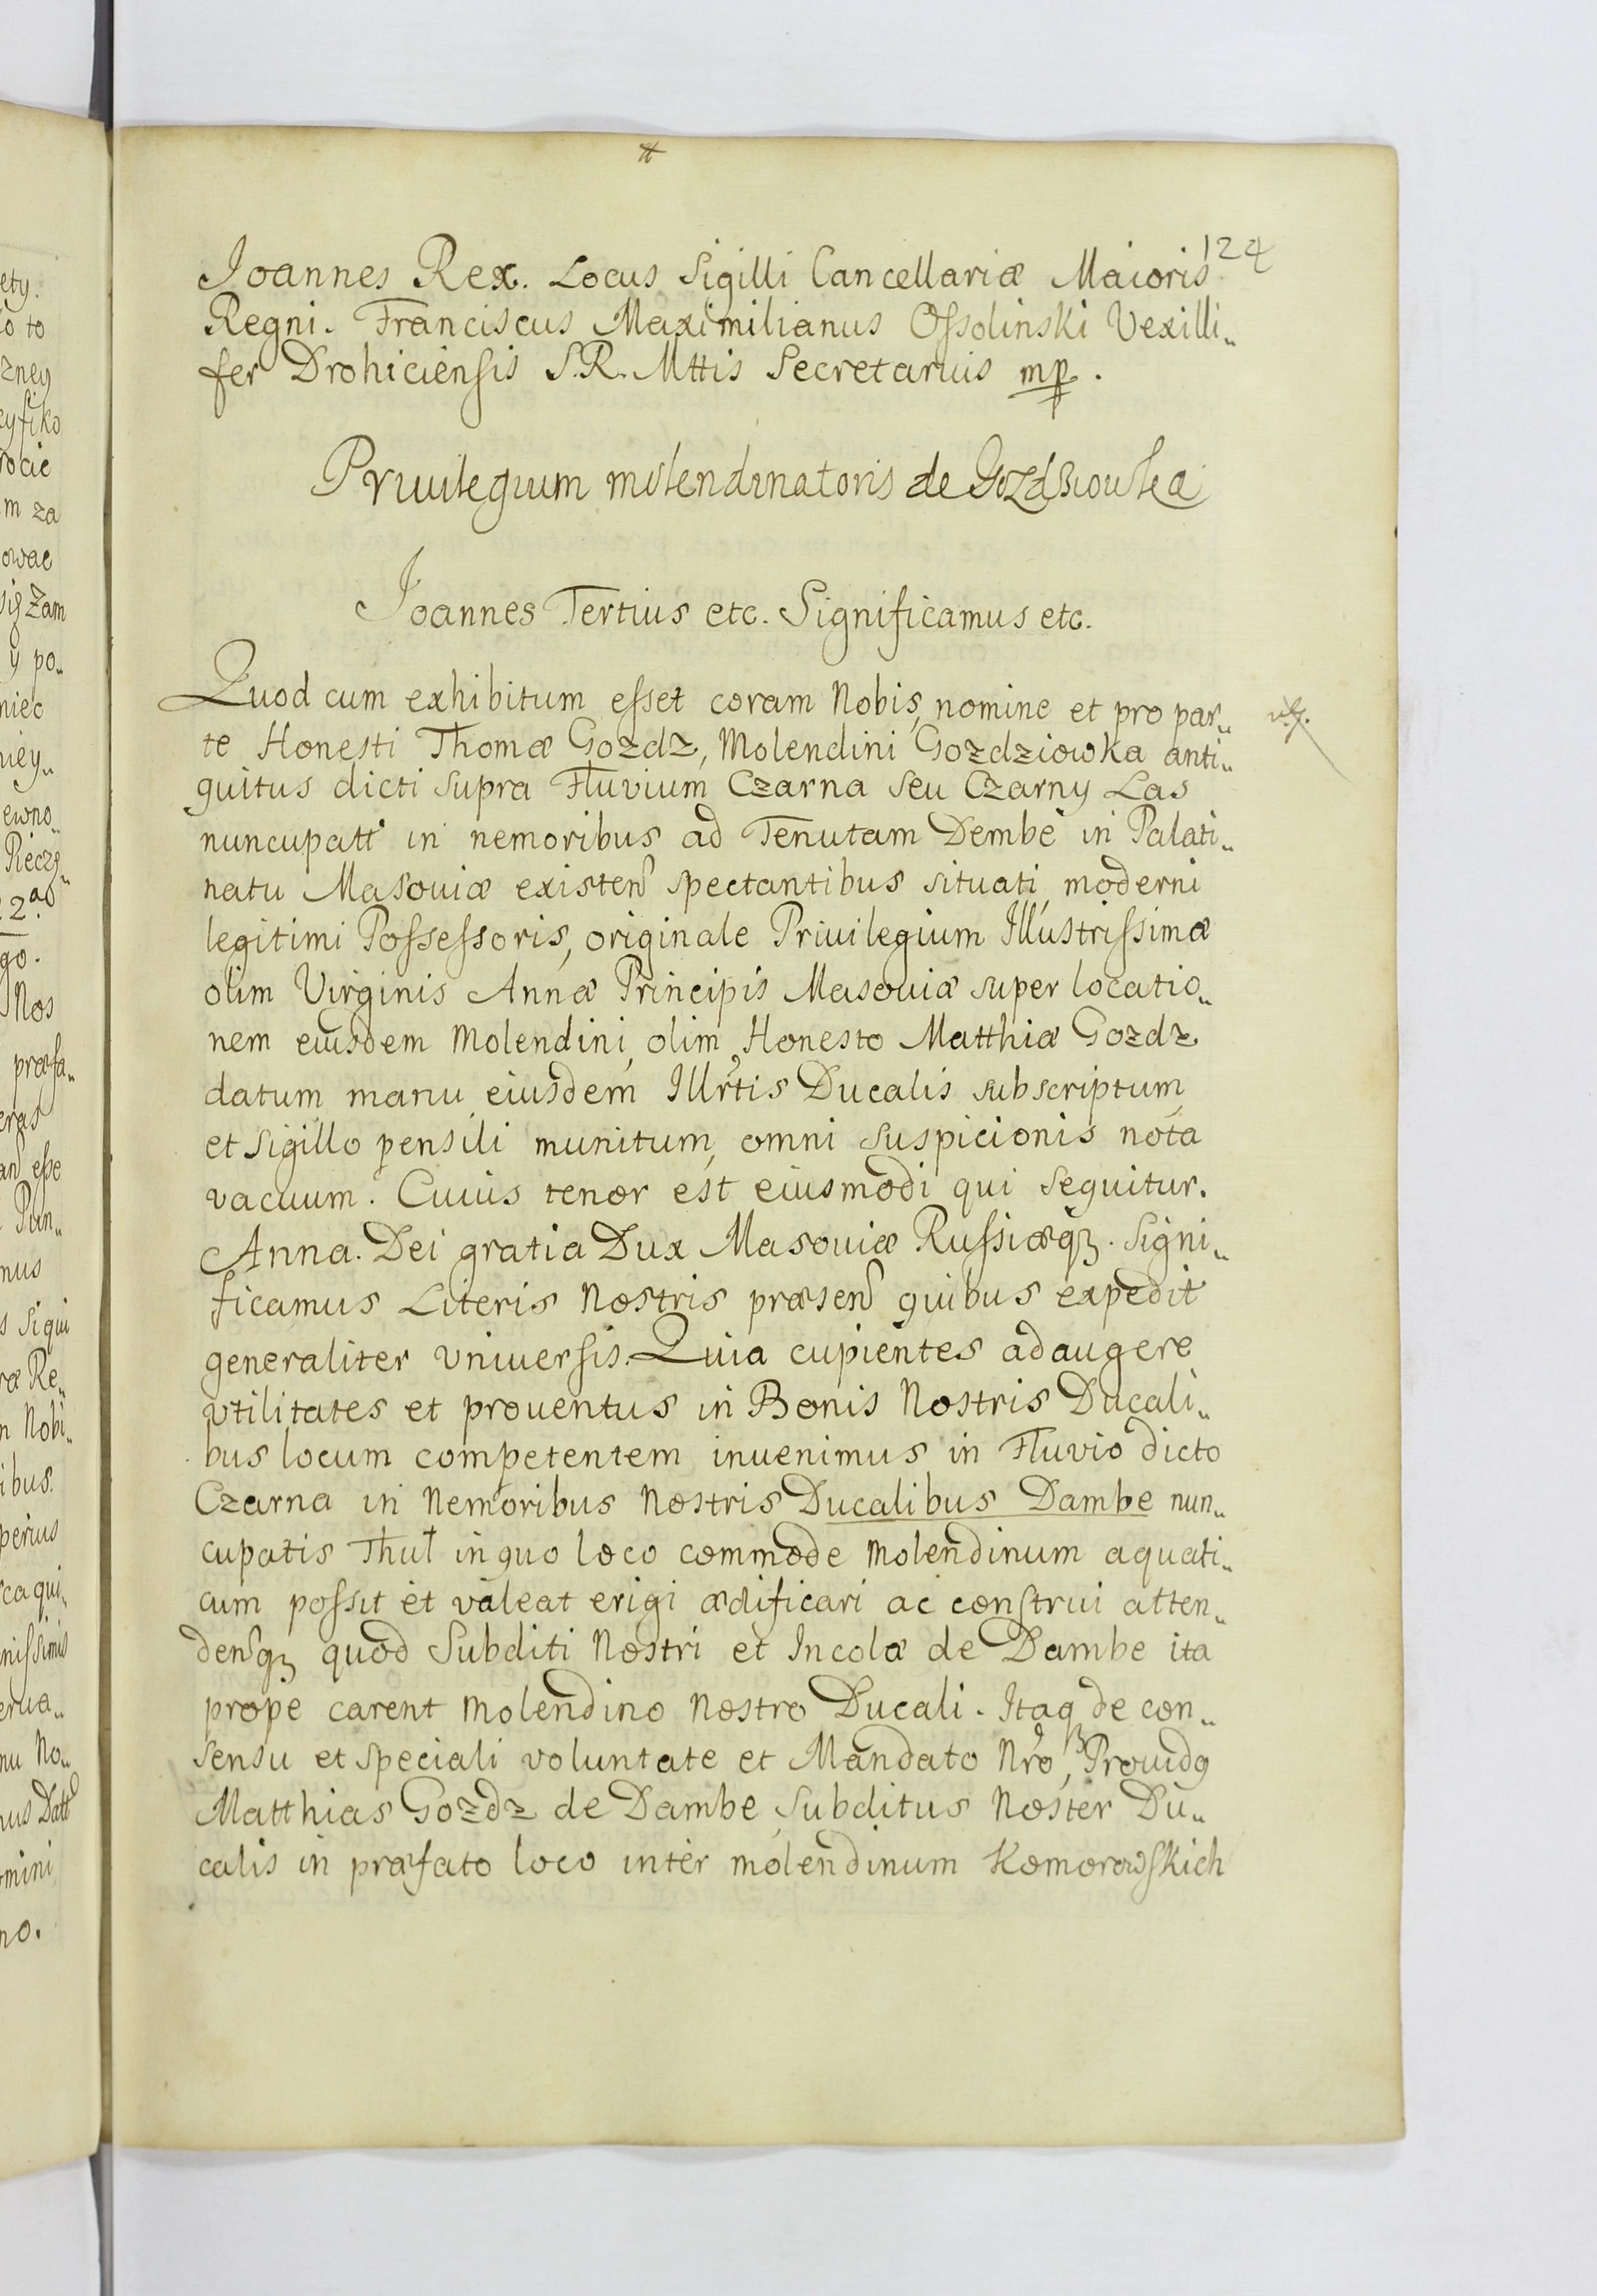 124
Joannes Rex. Locus Sigilli Cancellariæ Maioris
Regni. Franciscus Maximilianus Ossolinski Vexilli„
fer Drohiciensis S.R. Mttis Secretarius mp.
Priuilegium molendinatoris de Gozdziowka
Joannes Tertius etc. Significamus etc.
Quod cum exhibitum esset coram Nobis, nomine et pro par„
te Honesti Thomæ Gozdz, Molendini Gozdziowka anti„
quitus dicti supra Fluvium Czarna seu Czarny Las
nuncupatt in nemoribus ad Tenutam Dembe in Palati„
natu Masouiæ existen spectantibus situati, moderni
legitimi Possessoris, originale Priuilegium Illustrissimæ
olim Virginis Annæ Principis Masouiæ super locatio„
nem eiusdem Molendini, olim Honesto Matthiæ Gozdz
datum, manu eiusdem Illrtis Ducalis subscriptum
et sigillo pensili munitum, omni suspicionis nota
vacuum. Cuius tenor est eiusmodi qui sequitur.
Anna. Dei gratia Dux Masouiæ Russiæqꝫ. Signi„
ficamus Literis Nostris præsen quibus expedit
generaliter vniuersis. Quia cupientes adaugere
vtilitates et prouentus in Bonis Nostris Ducali„
bus locum competentem inuenimus in Fluvio dicto
Czarna in Nemoribus Nostris Ducalibus Dambe nun„
cupatis Thuł in quo loco commode molendinum aquati„
cum possit et valeat erigi ædificari ac construi atten„
denqꝫ quod Subditi Nostri et Incolæ de Dambe ita
prope carent Molendino Nostro Ducali. Itaqꝫ de con„
sensu et speciali voluntate et Mandato Nro, Prouidꝰ
Matthias Gozdz de Dambe, Subditus Noster Du„
calis in præfato loco inter molendinum Komorowskich